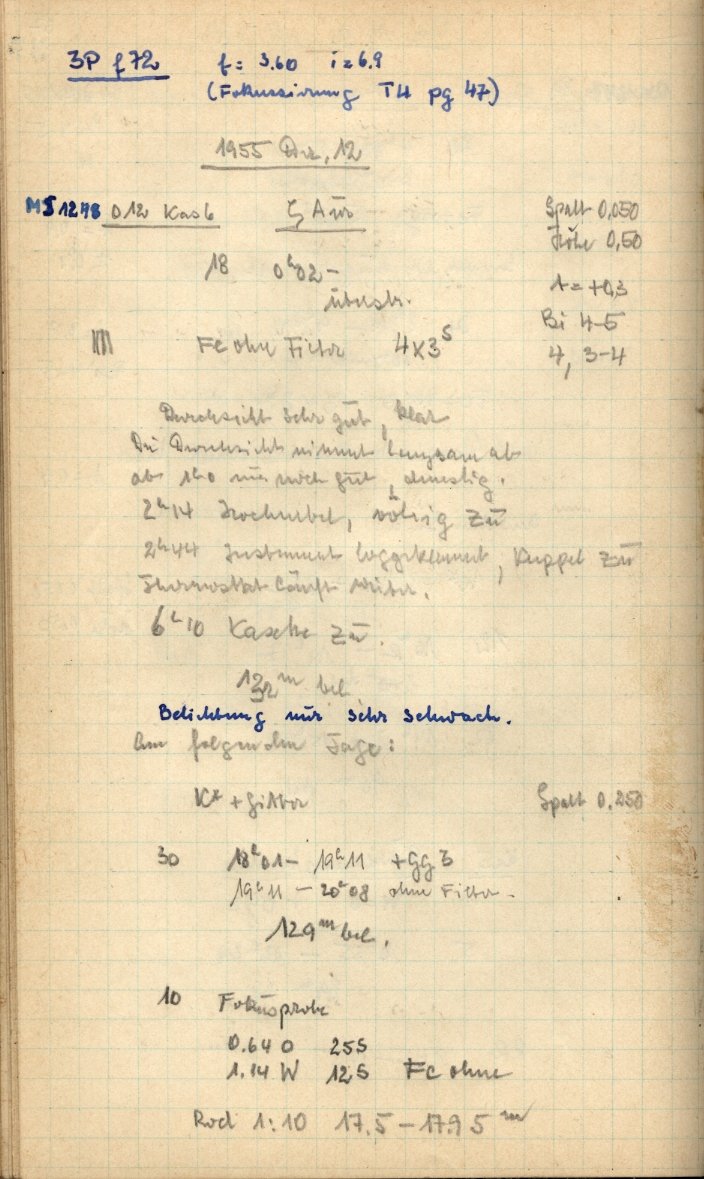 3P f 72 f = 3.60 i = 6.9
(Fokussierung T4 pg 47)
1955 Dez. 12
MJ1248 012 Kas 6 ζ Aur Spalt 0,050
Höhe 0,50
18 0ʰ02 –
überstr.
t = +0,3
Bi 4-5
Fe ohne Filter 4x3ˢ 4, 3-4
Durchsicht sehr gut, klar
Die Durchsicht nimmt langsam ab
ab 1ʰ0 nur noch gut, dunstig.
2ʰ14 Hochnebel, völlig zu
2ʰ44 Instrument, Kuppel zu
Thermostat läuft weiter.
6ʰ10 Kasette zu.
132ᵐ bel.
Belichtung nur sehr schwach.
Am folgenden Tage:
+ Gitter Spalt 0.250
30 18ʰ01 – 19ʰ11 + GG 3
19ʰ11 – 20ʰ08 ohne Filter.
129ᵐ bel.
10 Fokusprobe
0.64 O 25S
1.14 W 12S Fe ohne
Rod 1:10 17.5 – 17.95 ᵐ